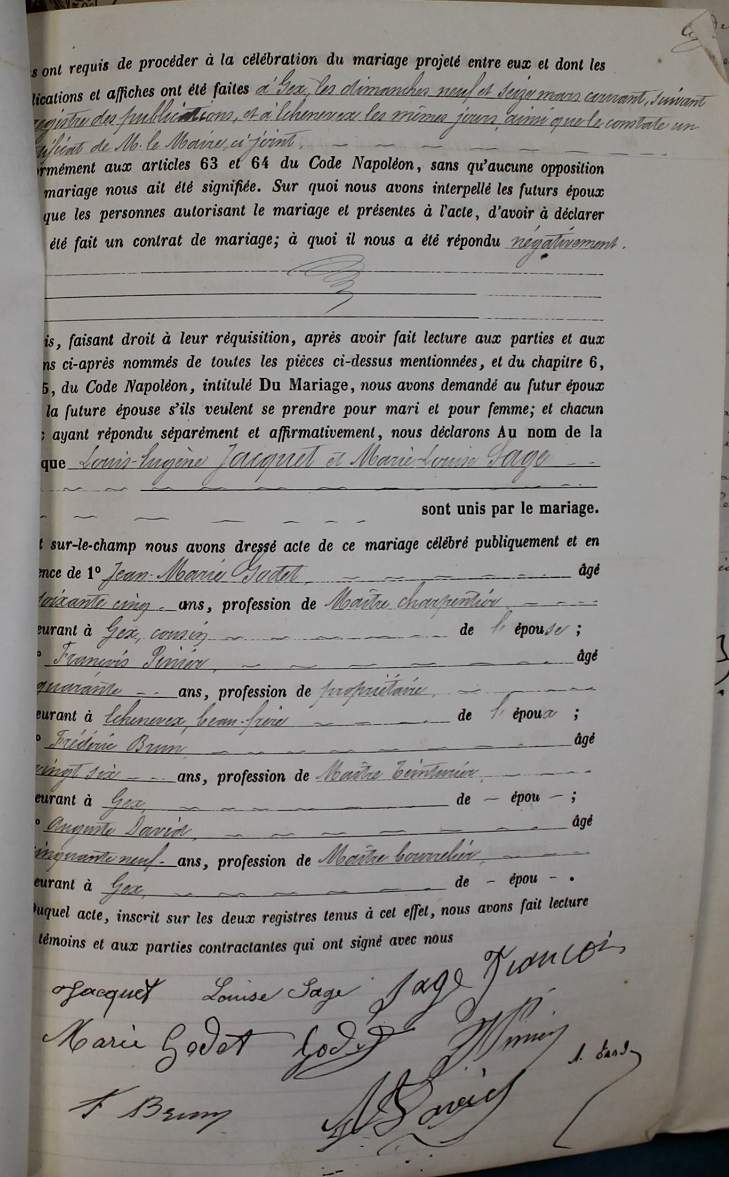 s ont requis de procéder à la célébration du mariage projeté entre eux et dont les
lications et affiches ont été faites à Gex, les dimanches neuf et seize mars courant, suivant
registre des publications, et à Echenevex les mêmes jours, ainsi que le constate un
tificat de M. le Maire, ci joint.
ormément aux articles 63 et 64 du Code Napoléon, sans qu'aucune opposition
mariage nous ait été signifiée. Sur quoi nous avons interpellé les futurs époux
que les personnes autorisant le mariage et présentes à l'acte, d'avoir à déclarer
été fait un contrat de mariage; à quoi il nous a été répondu négativement.
is, faisant droit à leur réquisition, après avoir fait lecture aux parties et aux
ns ci-après nommés de toutes les pièces ci-dessus mentionnées, et du chapitre 6,
5, du Code Napoléon, intitulé Du Mariage, nous avons demandé au futur époux
la future épouse s'ils veulent se prendre pour mari et pour femme; et chacun
ayant répondu séparément et affirmativement, nous déclarons Au nom de la
que Louis-Eugène Jacquet et Marie-Louise Sage
sont unis par le mariage.
t sur-le-champ nous avons dressé acte de ce mariage célébré publiquement et en
ence de 1° Jean-Marie Godet, âgé
soixante cinq ans, profession de Maître charpentier
eurant à Gex, cousin de l' épouse ;
° François Pinier, âgé
quarante ans, profession de propriétaire,
eurant à Echenevex, beau-frère de l' époux ;
° Frédéric Brun, âgé
vingt six ans, profession de Maître teinturier,
eurant à Gex, de — épou — ;
° Auguste David, âgé
cinquante neuf ans, profession de Maître bourrelier,
eurant à Gex, de — épou — .
Duquel acte, inscrit sur les deux registres tenus à cet effet, nous avons fait lecture
témoins et aux parties contractantes qui ont signé avec nous
Jacquet Louise Sage Sage François
Marie Godet Godet
F Brun A David